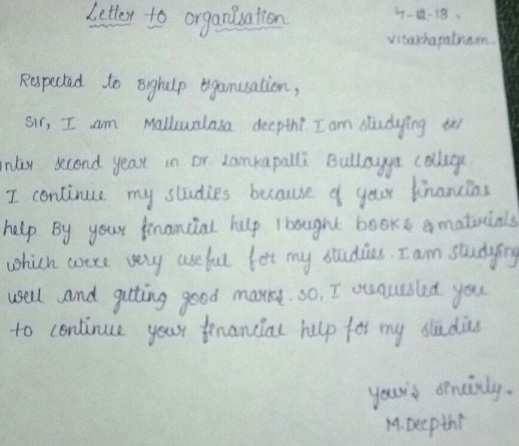 Letter to organisation
4-12-18,
visakhapatnam
Respected to Bighelp organisation,
Sir, I am Malluvalasa deepthi. I am studying
inter second year in Dr. Lankapalli Bullayya college.
I continue my studies because of your financial
help By your financial help I bought books & materials
which were very useful for my studies. I am studying
well and getting good marks. so, I requested you
to continue your financial help for my studies
your's sincerly.
M. Deepthi